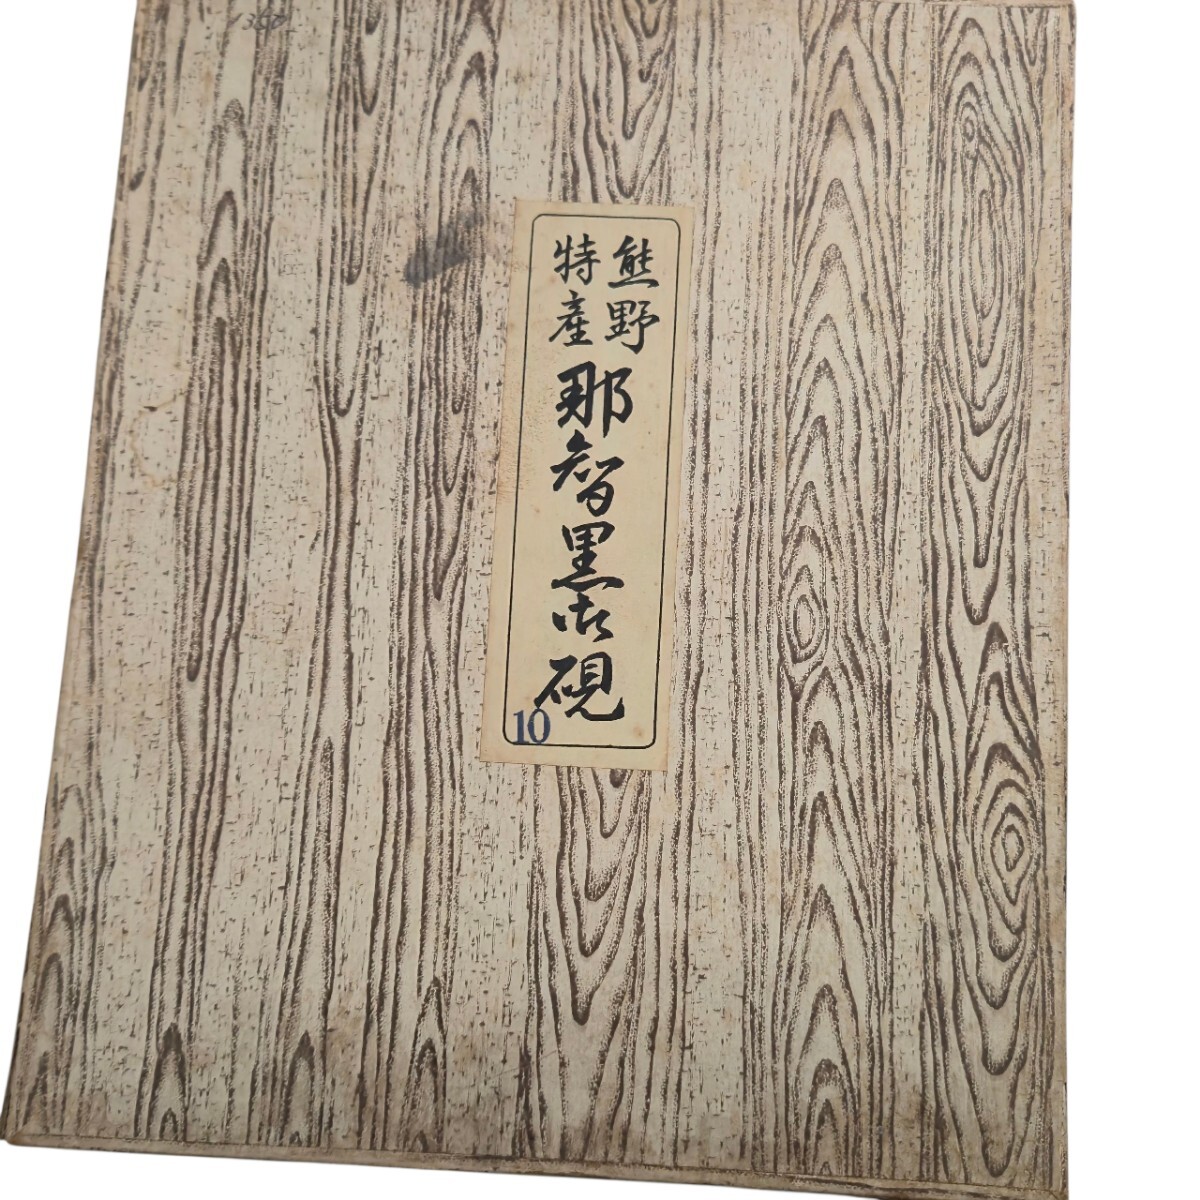 熊野
特産
那智黒石硯
10